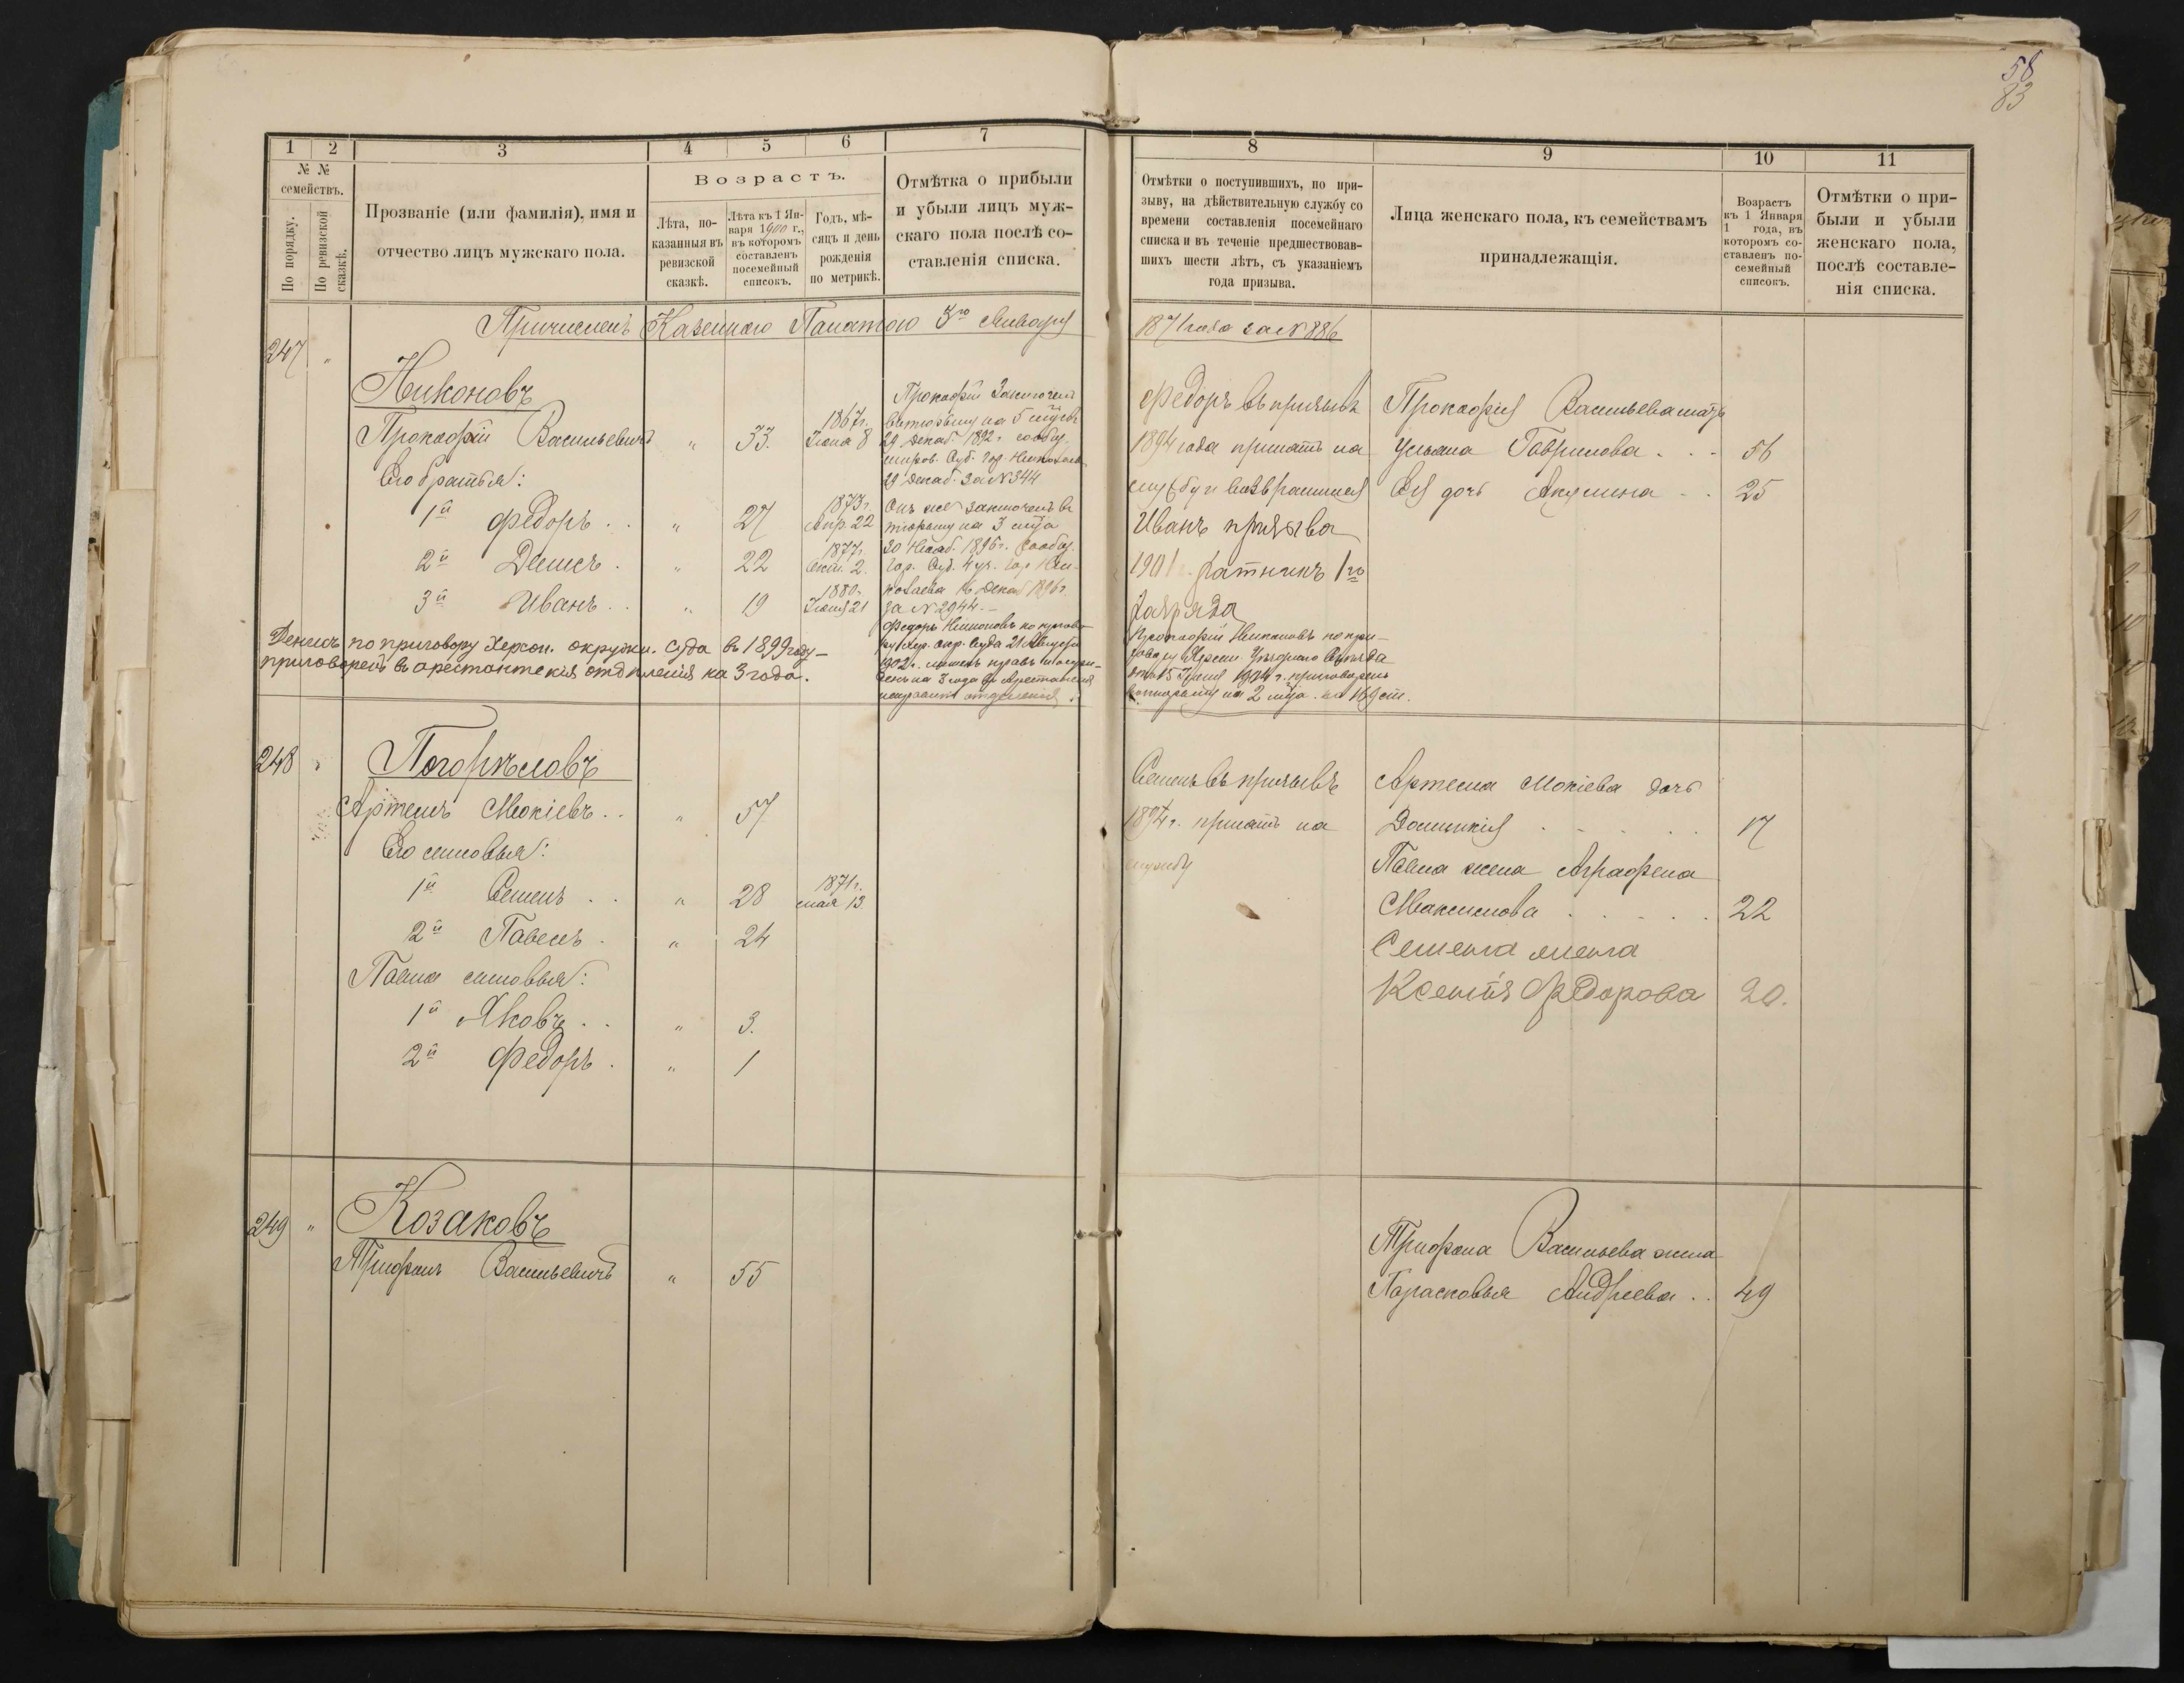 58
83
1 2 3 4 5 6 7
№ № семействъ.
По порядку.
По ревизской сказкѣ.
Прозваніе (или фамилія), имя и
отчество лицъ мужскаго пола.
Возрастъ.
Лѣта, по-
казанныя въ
ревизской
сказкѣ.
Лѣта къ 1 Ян-
варя 1900 г.,
въ которомъ
составленъ
посемейный
списокъ.
Годъ, мѣ-
сяцъ и день
рожденія
по метрикѣ.
Отмѣтка о прибыли
и убыли лицъ муж-
скаго пола послѣ со-
ставленія списка.
8 9 10 11
Отмѣтки о поступившихъ, по при-
зыву, на дѣйствительную службу со
времени составленія посемейнаго
списка и въ теченіе предшествовав-
шихъ шести лѣтъ, съ указаніемъ
года призыва.
Лица женскаго пола, къ семействамъ
принадлежащія.
Возрастъ
къ 1 Января
1 года, въ
которомъ со-
ставленъ по-
семейный
списокъ.
Отмѣтки о при-
были и убыли
женскаго пола,
послѣ составле-
нія списка.
Причисленъ Казенною Палатою 3го Января 1871 года за № 886
247 "
Никоновъ
Прокофій Васильевичъ " 33. 1867 г. Іюля 8
Его братья:
1й Федоръ . . " 27 1873 г. Апр. 22
2й Денисъ . " 22 1877 г. Окт. 2.
3й Иванъ . . " 19 1880 г. Іюня 21
Денисъ по приговору Херсон. окружн. суда въ 1899 году
приговоренъ въ арестантскія отдѣленія на 3 года.
Прокофій Заключенъ
въ тюрьму на 5 мѣсяц.
29 Декаб. 1892 г. сообщ.
миров. Суд. Гор. Николаева
29 Декаб. за № 344
Онъ же заключенъ въ
тюрьму на 3 мѣс.
30 Нояб. 1896 г. сообщ.
Гор. Суд. 4 уч. гор. Ни-
колаева 16 Декаб 1896 г.
за № 2944. –
Федоръ Никоновъ по пригово-
ру Хер. окр. Суда 21 Августа
1902 г. лишенъ правъ и заклю-
ченъ на 3 года въ Арестантскія
исправит. отдѣленія.
Федоръ въ призывѣ
1894 года принятъ на
службу и возвратился
Иванъ призыва
1901 г. ратникъ 1го
разряда
Прокофій Никоновъ по при-
говору Херсон. Уѣзднаго Съѣзда
отъ 15 Іюня 1904 г. приговоренъ
въ тюрьму на 2 мѣс. по 169 ст.
Прокофія Васильева мать
Ульяна Гаврилова . . . 56
Ея дочь Акулина . . 25
248 "
Погорѣловъ
Артемъ Мокіевъ . . " 57
Его сыновья:
1й Семенъ . . " 28 1871 г. мая 13.
2й Павелъ . " 24
Павла сыновья:
1й Яковъ . . " 3.
2й Федоръ . " 1
Семенъ въ призывѣ
1894 г. принятъ на
службу
Артема Мокіева дочь
Домникія . . . . . 17
Павла жена Аграфена
Максимова . . . . . 22
Семена жена
Ксенія Федорова 20.
249 "
Козаковъ
Трифонъ Васильевичъ " 55
Трифона Васильева жена
Парасковья Андреева . . 49